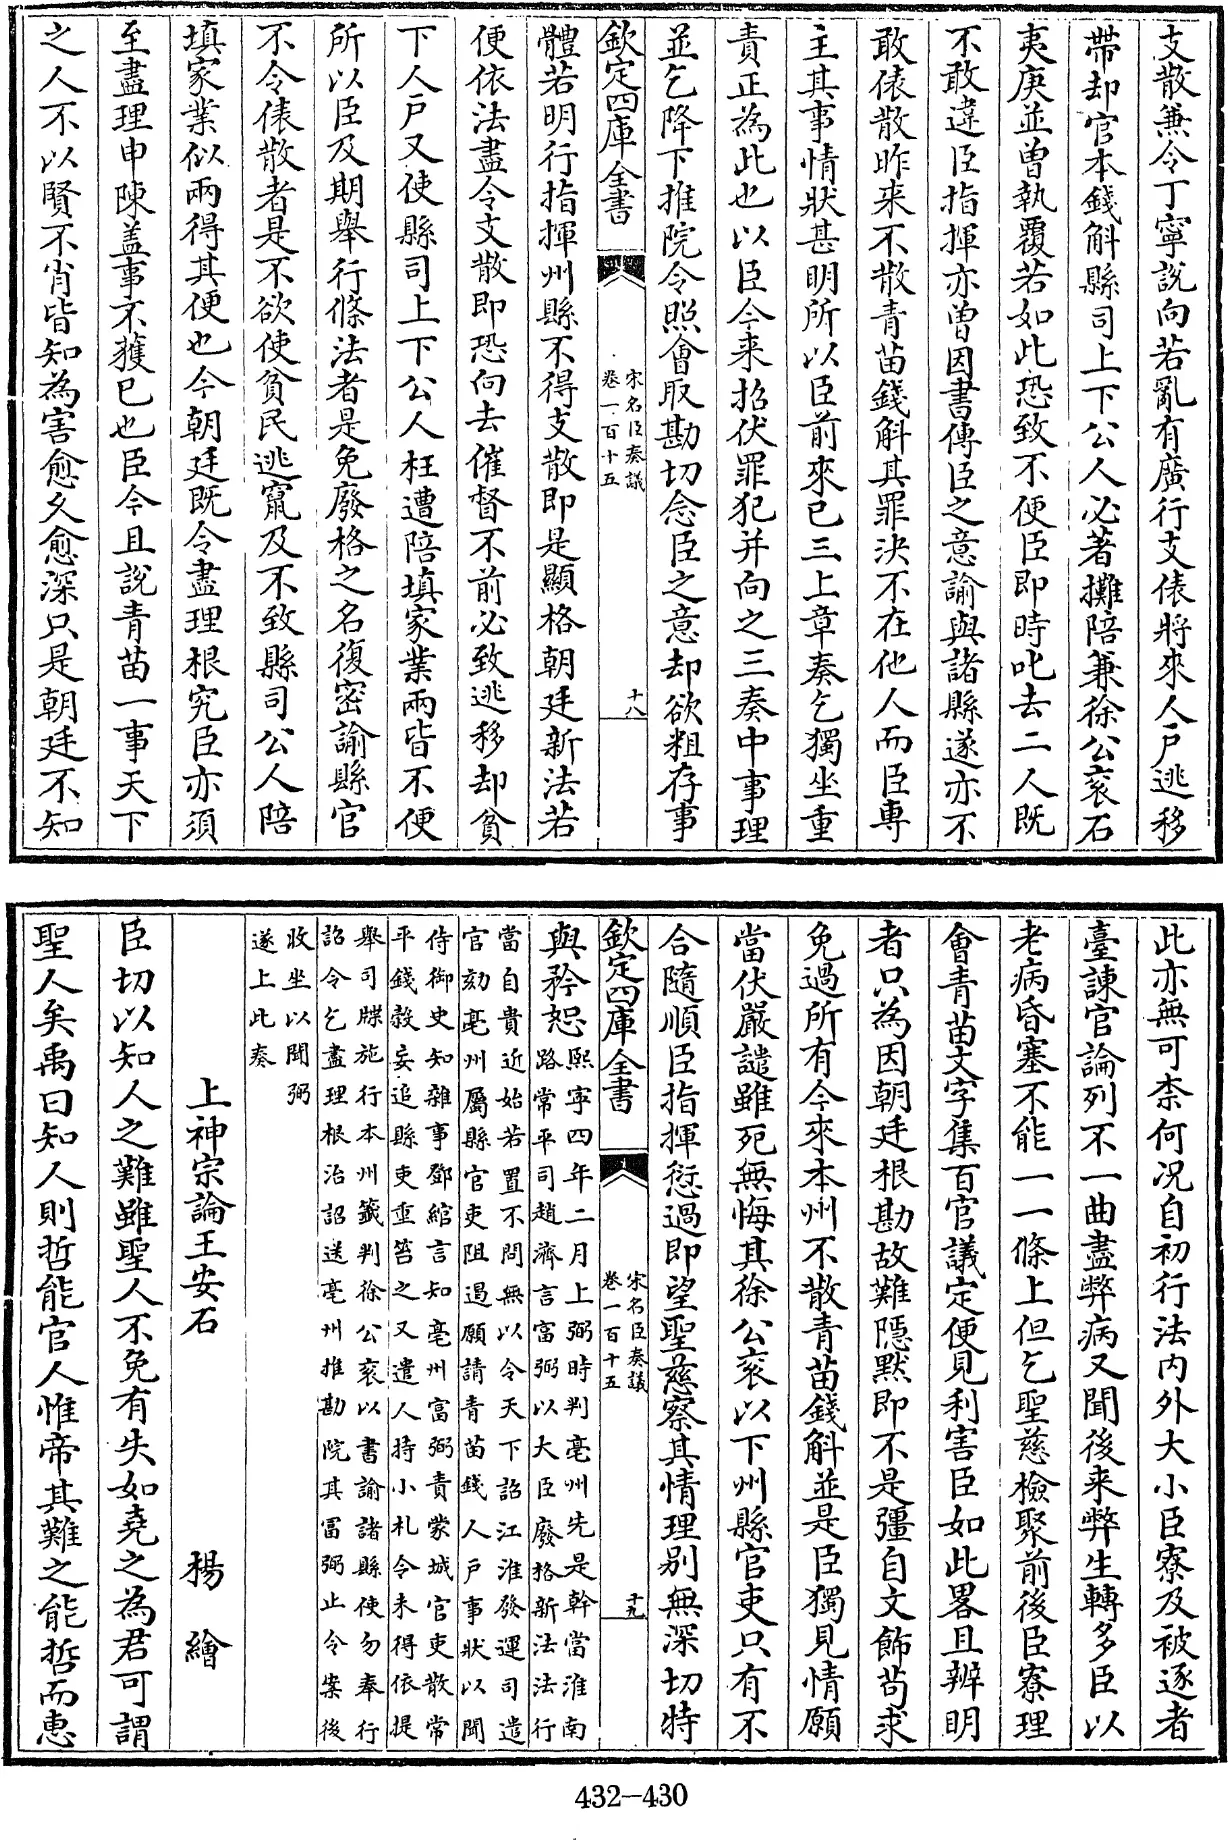 支散兼令丁寧說向若亂有廣行支俵將來人戶逃移
帶却官本錢斛縣司上下公人必著攤陪兼徐公衮石
夷庚並曽執覆若如此恐致不便臣即時叱去二人既
不敢違臣指揮亦曽因書傳臣之意諭與諸縣遂亦不
敢俵散昨来不散青苗錢斛其罪決不在他人而臣專
主其事情狀甚明所以臣前來已三上章奏乞獨坐重
責正為此也以臣今来招伏罪犯并向之三奏中事理
並乞降下推院令照會取勘切念臣之意却欲粗存事
欽定四庫全書
宋名臣奏議
卷一百十五
十八
體若明行指揮州縣不得支散即是顯格朝廷新法若
便依法盡令支散即恐向去催督不前必致逃移却貧
下人戶又使縣司上下公人枉遭陪填家業兩皆不便
所以臣及期舉行條法者是免廢格之名復密諭縣官
不令俵散者是不欲使貧民逃竄及不致縣司公人陪
填家業似兩得其便也今朝廷既令盡理根究臣亦須
至盡理申陳盖事不獲已也臣今且說青苗一事天下
之人不以賢不肖皆知為害愈久愈深只是朝廷不知
此亦無可柰何况自初行法内外大小臣寮及被逐者
臺諫官論列不一曲盡弊病又聞後来弊生轉多臣以
老病昏塞不能一一條上但乞聖慈檢聚前後臣寮理
會青苗文字集百官議定便見利害臣如此畧且辨明
者只為因朝廷根勘故難隱默即不是彊自文飾苟求
免過所有今來本州不散青苗錢斛並是臣獨見情願
當伏嚴譴雖死無悔其徐公衮以下州縣官吏只有不
合隨順臣指揮愆過即望聖慈察其情理别無深切特
欽定四庫全書
宋名臣奏議
卷一百十五
十九
與矜恕熙寧四年二月上弼時判亳州先是幹當淮南
路常平司趙濟言富弼以大臣廢格新法法行
當自貴近始若置不問無以令天下詔江淮發運司遣
官劾亳州屬縣官吏阻遏願請青苗錢人戶事狀以聞
侍御史知雜事鄧綰言知亳州富弼責蒙城官吏散常
平錢榖妄追縣吏重笞之又遣人持小札令未得依提
舉司牒施行本州籖判徐公衮以書諭諸縣使勿奉行
詔令乞盡理根治詔送亳州推勘院其冨弼止令案後
收坐以聞弼
遂上此奏
上神宗論王安石　楊繪
臣切以知人之難雖聖人不免有失如堯之為君可謂
聖人矣禹曰知人則哲能官人惟帝其難之能哲而惠
432-430